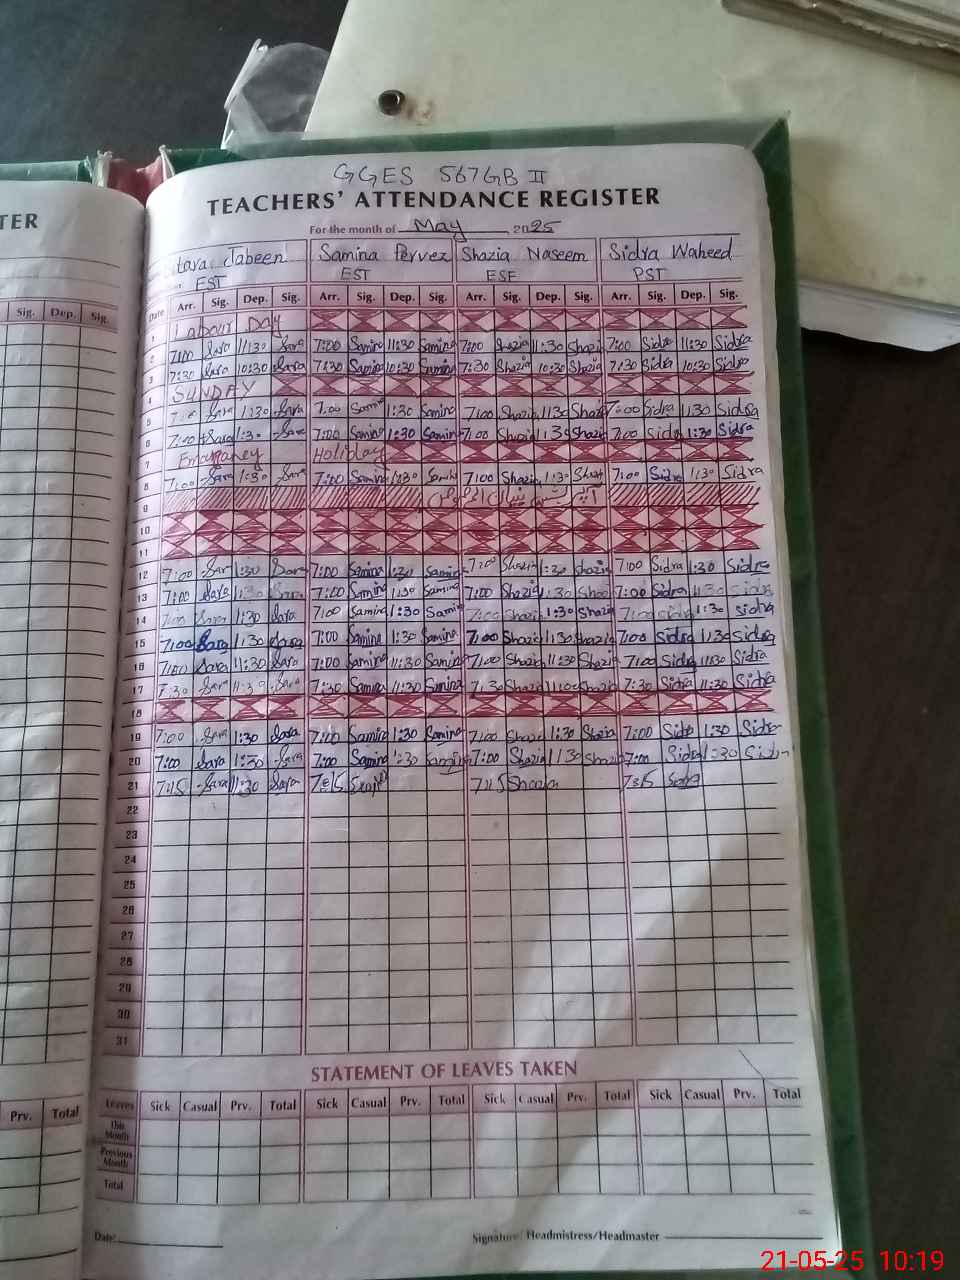 GGES 567GB II
TER
TEACHERS' ATTENDANCE REGISTER
For the month of May 2025
Jabeen Samina Pervez Shazia Naseem Sidra Waheed
EST EST ESE PST
Sig. Dep. Sig. Date Arr. Sig. Dep. Sig. Arr. Sig. Dep. Sig. Arr. Sig. Dep. Sig. Arr. Sig. Dep. Sig.
1 Labour Day
2 7:00 Sara 11:30 Sara 7:00 Samina 11:30 Samina 7:00 Shazia 11:30 Shazi 7:00 Sidra 11:30 Sidra
3 7:30 Sara 10:30 Sara 7:30 Samina 10:30 Samina 7:30 Shazia 10:30 Shazia 7:30 Sidra 10:30 Sidra
4 SUNDAY
5 7:00 Sara 1:30 Sara 7:00 Samina 1:30 Samina 7:00 Shazia 1:30 Shazia 7:00 Sidra 1:30 Sidra
6 7:00 Sara 1:30 Sara 7:00 Samina 1:30 Samina 7:00 Shazia 1:30 Shazia 7:00 Sidra 1:30 Sidra
7 Holiday
8 7:00 Sara 1:30 Sara 7:00 Samina 1:30 Samina 7:00 Shazia 1:30 Shazi 7:00 Sidra 1:30 Sidra
9
10
11
12 7:00 Sara 1:30 Sara 7:00 Samina 1:30 Samina 7:00 Shazia 1:30 Shazia 7:00 Sidra 1:30 Sidra
13 7:00 Sara 1:30 Sara 7:00 Samina 1:30 Samina 7:00 Shazia 1:30 7:00 Sidra 1:30 Sidra
14 7:00 Sara 1:30 Sara 7:00 Samina 1:30 Samina 7:00 Shazia 1:30 Shazia 7:00 Sidra 1:30 Sidra
15 7:00 Sara 1:30 Sara 7:00 Samina 1:30 Samina 7:00 Shazia 1:30 Shazia 7:00 Sidra 1:30 Sidra
16 7:00 Sara 11:30 Sara 7:00 Samina 11:30 Samina 7:00 Shazia 11:30 Shazia 7:00 Sidra 11:30 Sidra
17 7:30 Sara 11:30 Sara 7:30 Samina 11:30 Samina 7:30 Shazia 11:00 Shazia 7:30 Sidra 11:30 Sidra
18
19 7:00 Sara 1:30 Sara 7:00 Samina 1:30 Samina 7:00 Shazia 1:30 Shazia 7:00 Sidra 1:30 Sidra
20 7:00 Sara 1:30 Sara 7:00 Samina 1:30 Samina 7:00 Shazia 1:30 Shazia 7:00 Sidra 1:30 Sidra
21 7:15 Sara 11:30 Sara 7:15 7:15 Shazia 7:15 Sidra
22
23
24
25
26
27
28
29
30
31
STATEMENT OF LEAVES TAKEN
Prv. Total Leaves Sick Casual Prv. Total Sick Casual Prv. Total Sick Casual Prv. Total Sick Casual Prv. Total
This Month
Previous Month
Total
Date: Signature/ Headmistress/Headmaster
21-05-25 10:19